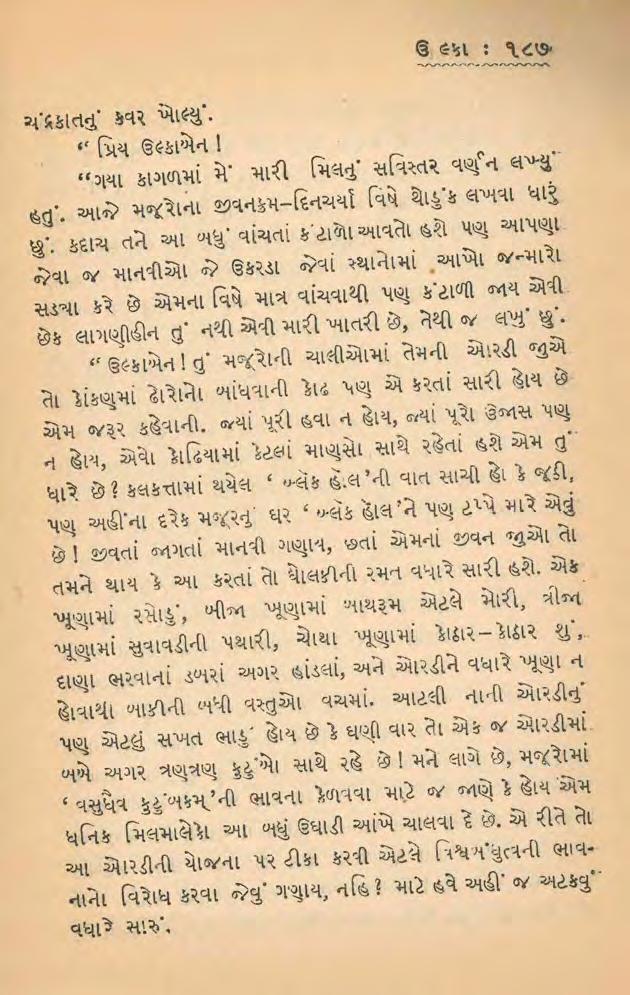 ઉલ્કા : ૧૮૭
ચંદ્રકાતનું કવર ખોલ્યું.
“ પ્રિય ઉલ્કાબેન !
“ગયા કાગળમાં મેં મારી મિલનું સવિસ્તર વર્ણન લખ્યું
હતું. આજે મજૂરોના જીવનક્રમ–દિનચર્યા વિષે થોડુંક લખવા ધારું
છું. કદાચ તને આ બધું વાંચતાં કંટાળો આવતો હશે પણ આપણા
જેવા જ માનવીઓ જે ઉકરડા જેવાં સ્થાનોમાં આખો જન્મારો
સડ્યા કરે છે એમના વિષે માત્ર વાંચવાથી પણ કંટાળી જાય એવી
છેક લાગણીહીન તું નથી એવી મારી ખાતરી છે, તેથી જ લખું છું.
“ ઉલ્કાબેન ! તું મજૂરોની ચાલીઓમાં તેમની ઓરડી જુએ
તો કોંકણમાં ઢોરોનો બાંધવાની કોઢ પણ એ કરતાં સારી હોય છે
એમ જરૂર કહેવાની. જ્યાં પૂરી હવા ન હોય, જ્યાં પૂરો ઉજાસ પણ
ન હોય, એવો કોઢિયામાં કેટલાં માણસો સાથે રહેતાં હશે એમ તું
ધારે છે? કલકત્તામાં થયેલ ‘ બ્લૅક હૉલ’ની વાત સાચી હો કે જૂઠી,
પણ અહીંના દરેક મજૂરનું ઘર ‘ બ્લૅક હૉલ’ને પણ ટપ્પે મારે એવું
છે ! જીવતાં જાગતાં માનવી ગણાય, છતાં એમનાં જીવન જુઓ તો
તમને થાય કે આ કરતાં તો ઘોલકીની રમત વધારે સારી હશે. એક
ખૂણામાં રસોડું, બીજા ખૂણામાં બાથરૂમ એટલે મોરી, ત્રીજા
ખૂણામાં સુવાવડીની પથારી, ચોથા ખૂણામાં કોઠાર–કોઠાર શું,
દાણા ભરવાનાં ડબરાં અગર હાંડલાં, અને ઓરડીને વધારે ખૂણા ન
હોવાથી બાકીની બધી વસ્તુઓ વચમાં. આટલી નાની ઓરડીનું
પણ એટલું સખત ભાડું હોય છે કે ઘણી વાર તો એક જ ઓરડીમાં
બબે અગર ત્રણત્રણ કુટુંબો સાથે રહે છે ! મને લાગે છે, મજૂરોમાં
‘ વસુધૈવ કુટુંબકમ્ ’ની ભાવના કેળવવા માટે જ જાણે કે હોય એમ
ધનિક મિલમાલેકો આ બધું ઉઘાડી આંખે ચાલવા દે છે. એ રીતે તો
આ ઓરડીની યોજના પર ટીકા કરવી એટલે વિશ્વબંધુત્વની ભાવ-
નાનો વિરોધ કરવા જેવું ગણાય, નહિ? માટે હવે અહીં જ અટકવું
વધારે સારું.